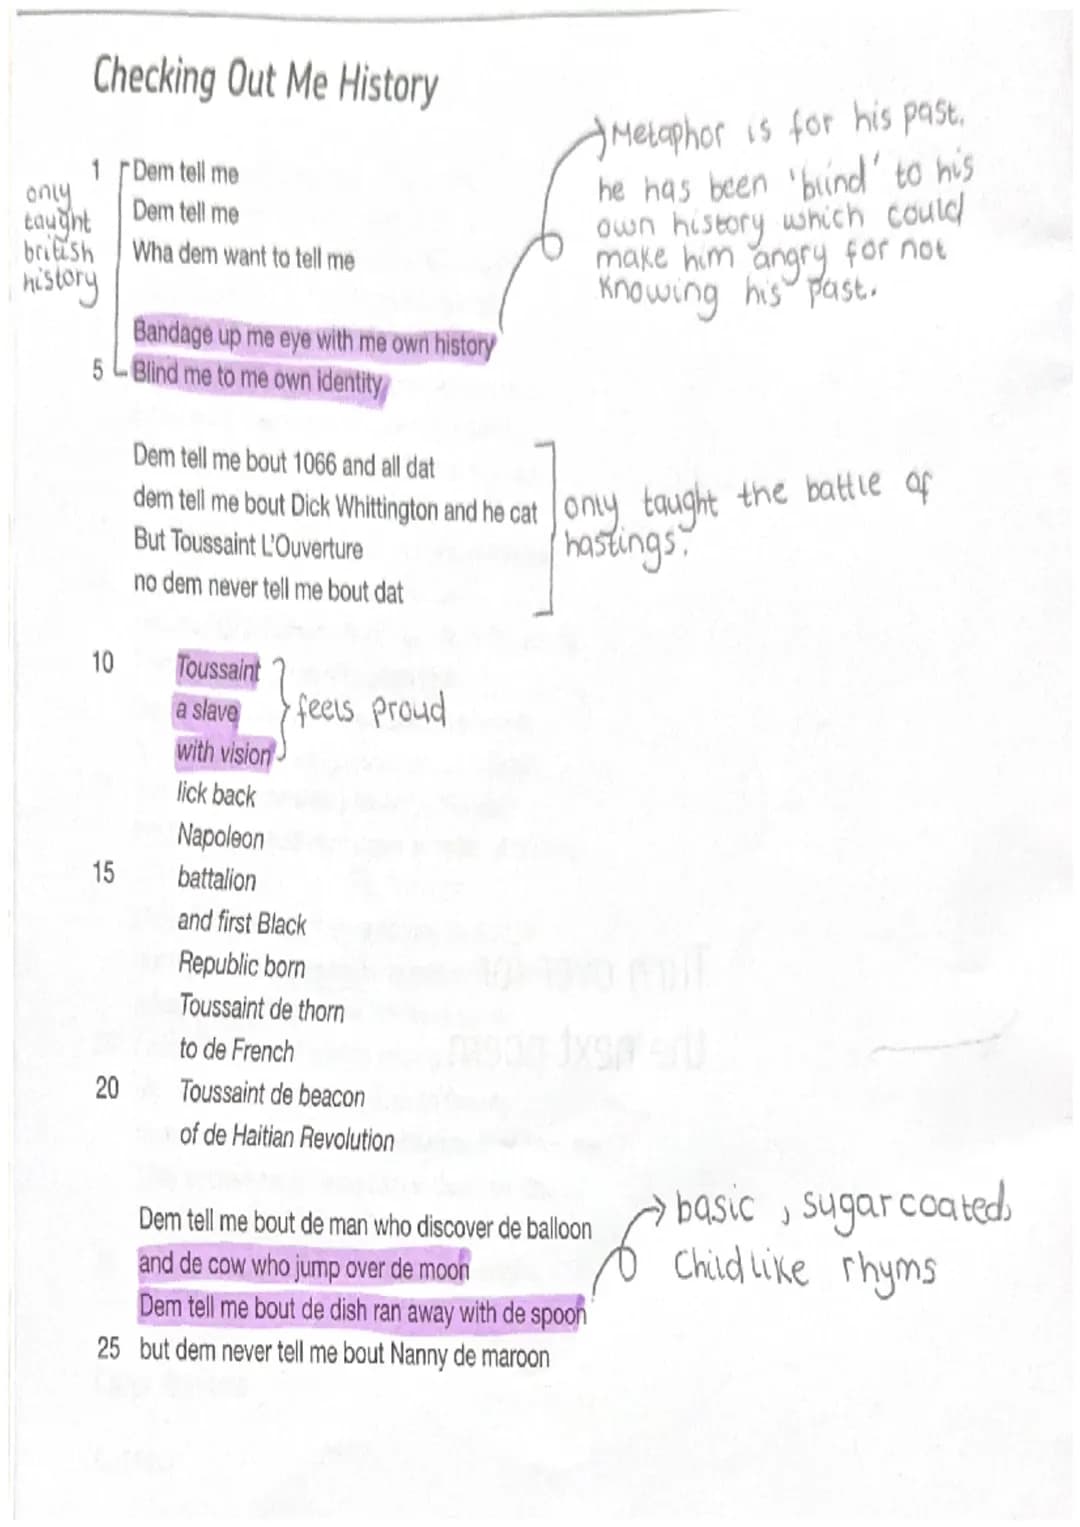 Checking Out Me History
1 Dem tell me
Dem tell me
Wha dem want to tell me
only
taught
british
history
Bandage up me eye with me own history
5 Blind me to me own identity
Metaphor is for his past.
he has been 'blind' to his
own history which could
make him angry for not
knowing his past.
Dem tell me bout 1066 and all dat
dem tell me bout Dick Whittington and he cat
But Toussaint L'Ouverture
no dem never tell me bout dat
only taught the battle of
hastings.
10 Toussaint
a slave
with vision
feels proud
lick back
Napoleon
15 battalion
and first Black
Republic born
Toussaint de thorn
to de French
20 Toussaint de beacon
of de Haitian Revolution
Dem tell me bout de man who discover de balloon
and de cow who jump over de moon
Dem tell me bout de dish ran away with de spoon
25 but dem never tell me bout Nanny de maroon
basic, sugarcoated,
Childlike rhyms